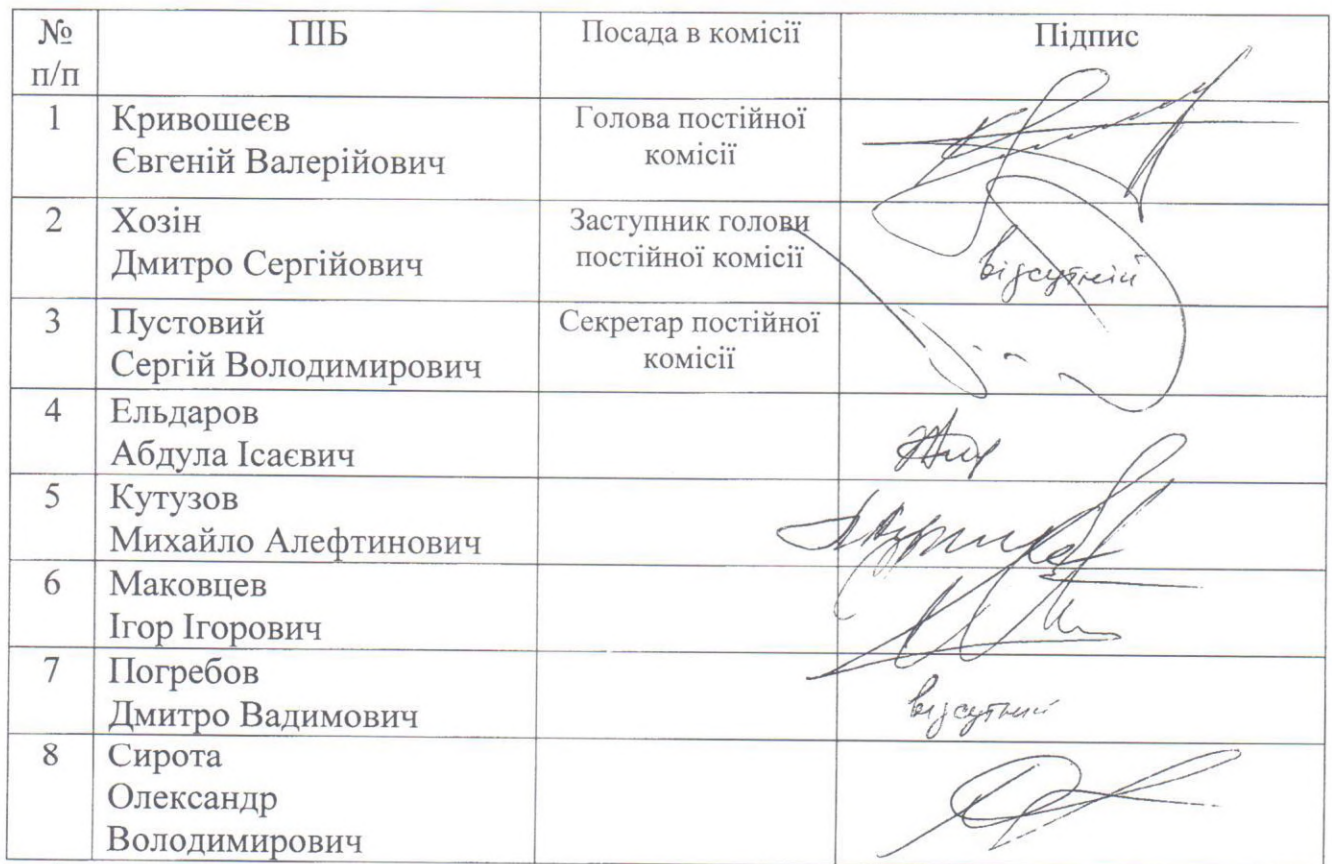 № п/п ПІБ Посада в комісії Підпис
1 Кривошеєв Євгеній Валерійович Голова постійної комісії
2 Хозін Дмитро Сергійович Заступник голови постійної комісії відсутній
3 Пустовий Сергій Володимирович Секретар постійної комісії
4 Ельдаров Абдула Ісаєвич
5 Кутузов Михайло Алефтинович
6 Маковцев Ігор Ігорович
7 Погребов Дмитро Вадимович відсутній
8 Сирота Олександр Володимирович